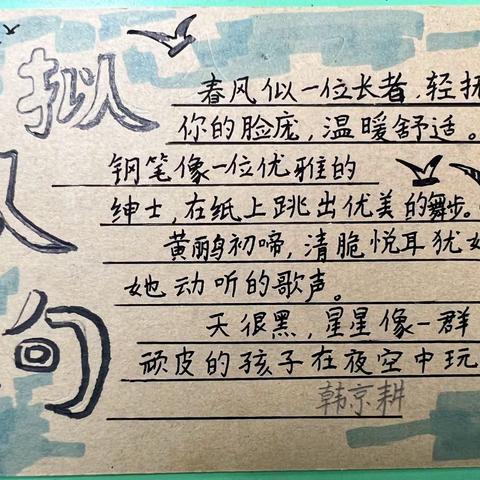 拟人句
春风似一位长者,轻抚
你的脸庞,温暖舒适。
钢笔像一位优雅的
绅士,在纸上跳出优美的舞步。
黄鹂初啼,清脆悦耳犹如
她动听的歌声。
天很黑,星星像一群
顽皮的孩子在夜空中玩
韩京耕